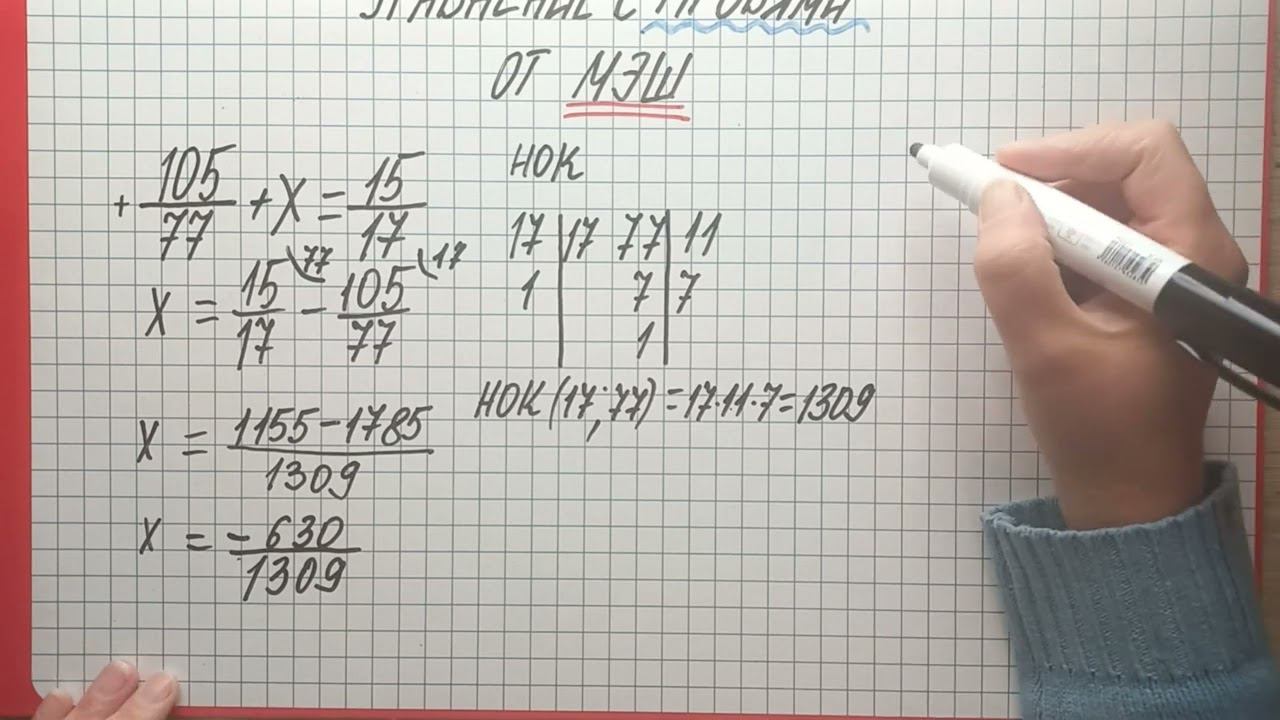 УРАВНЕНИЕ С ДРОБЯМИ
ОТ МЭШ
+ 105/77 + X = 15/17
X = 15/17 \77 - 105/77 \17
X = 1155-1785/1309
X = -630/1309
НОК
17 | 17 77 | 11
1 | 7 | 7
| 1 |
НОК (17; 77) = 17·11·7 = 1309